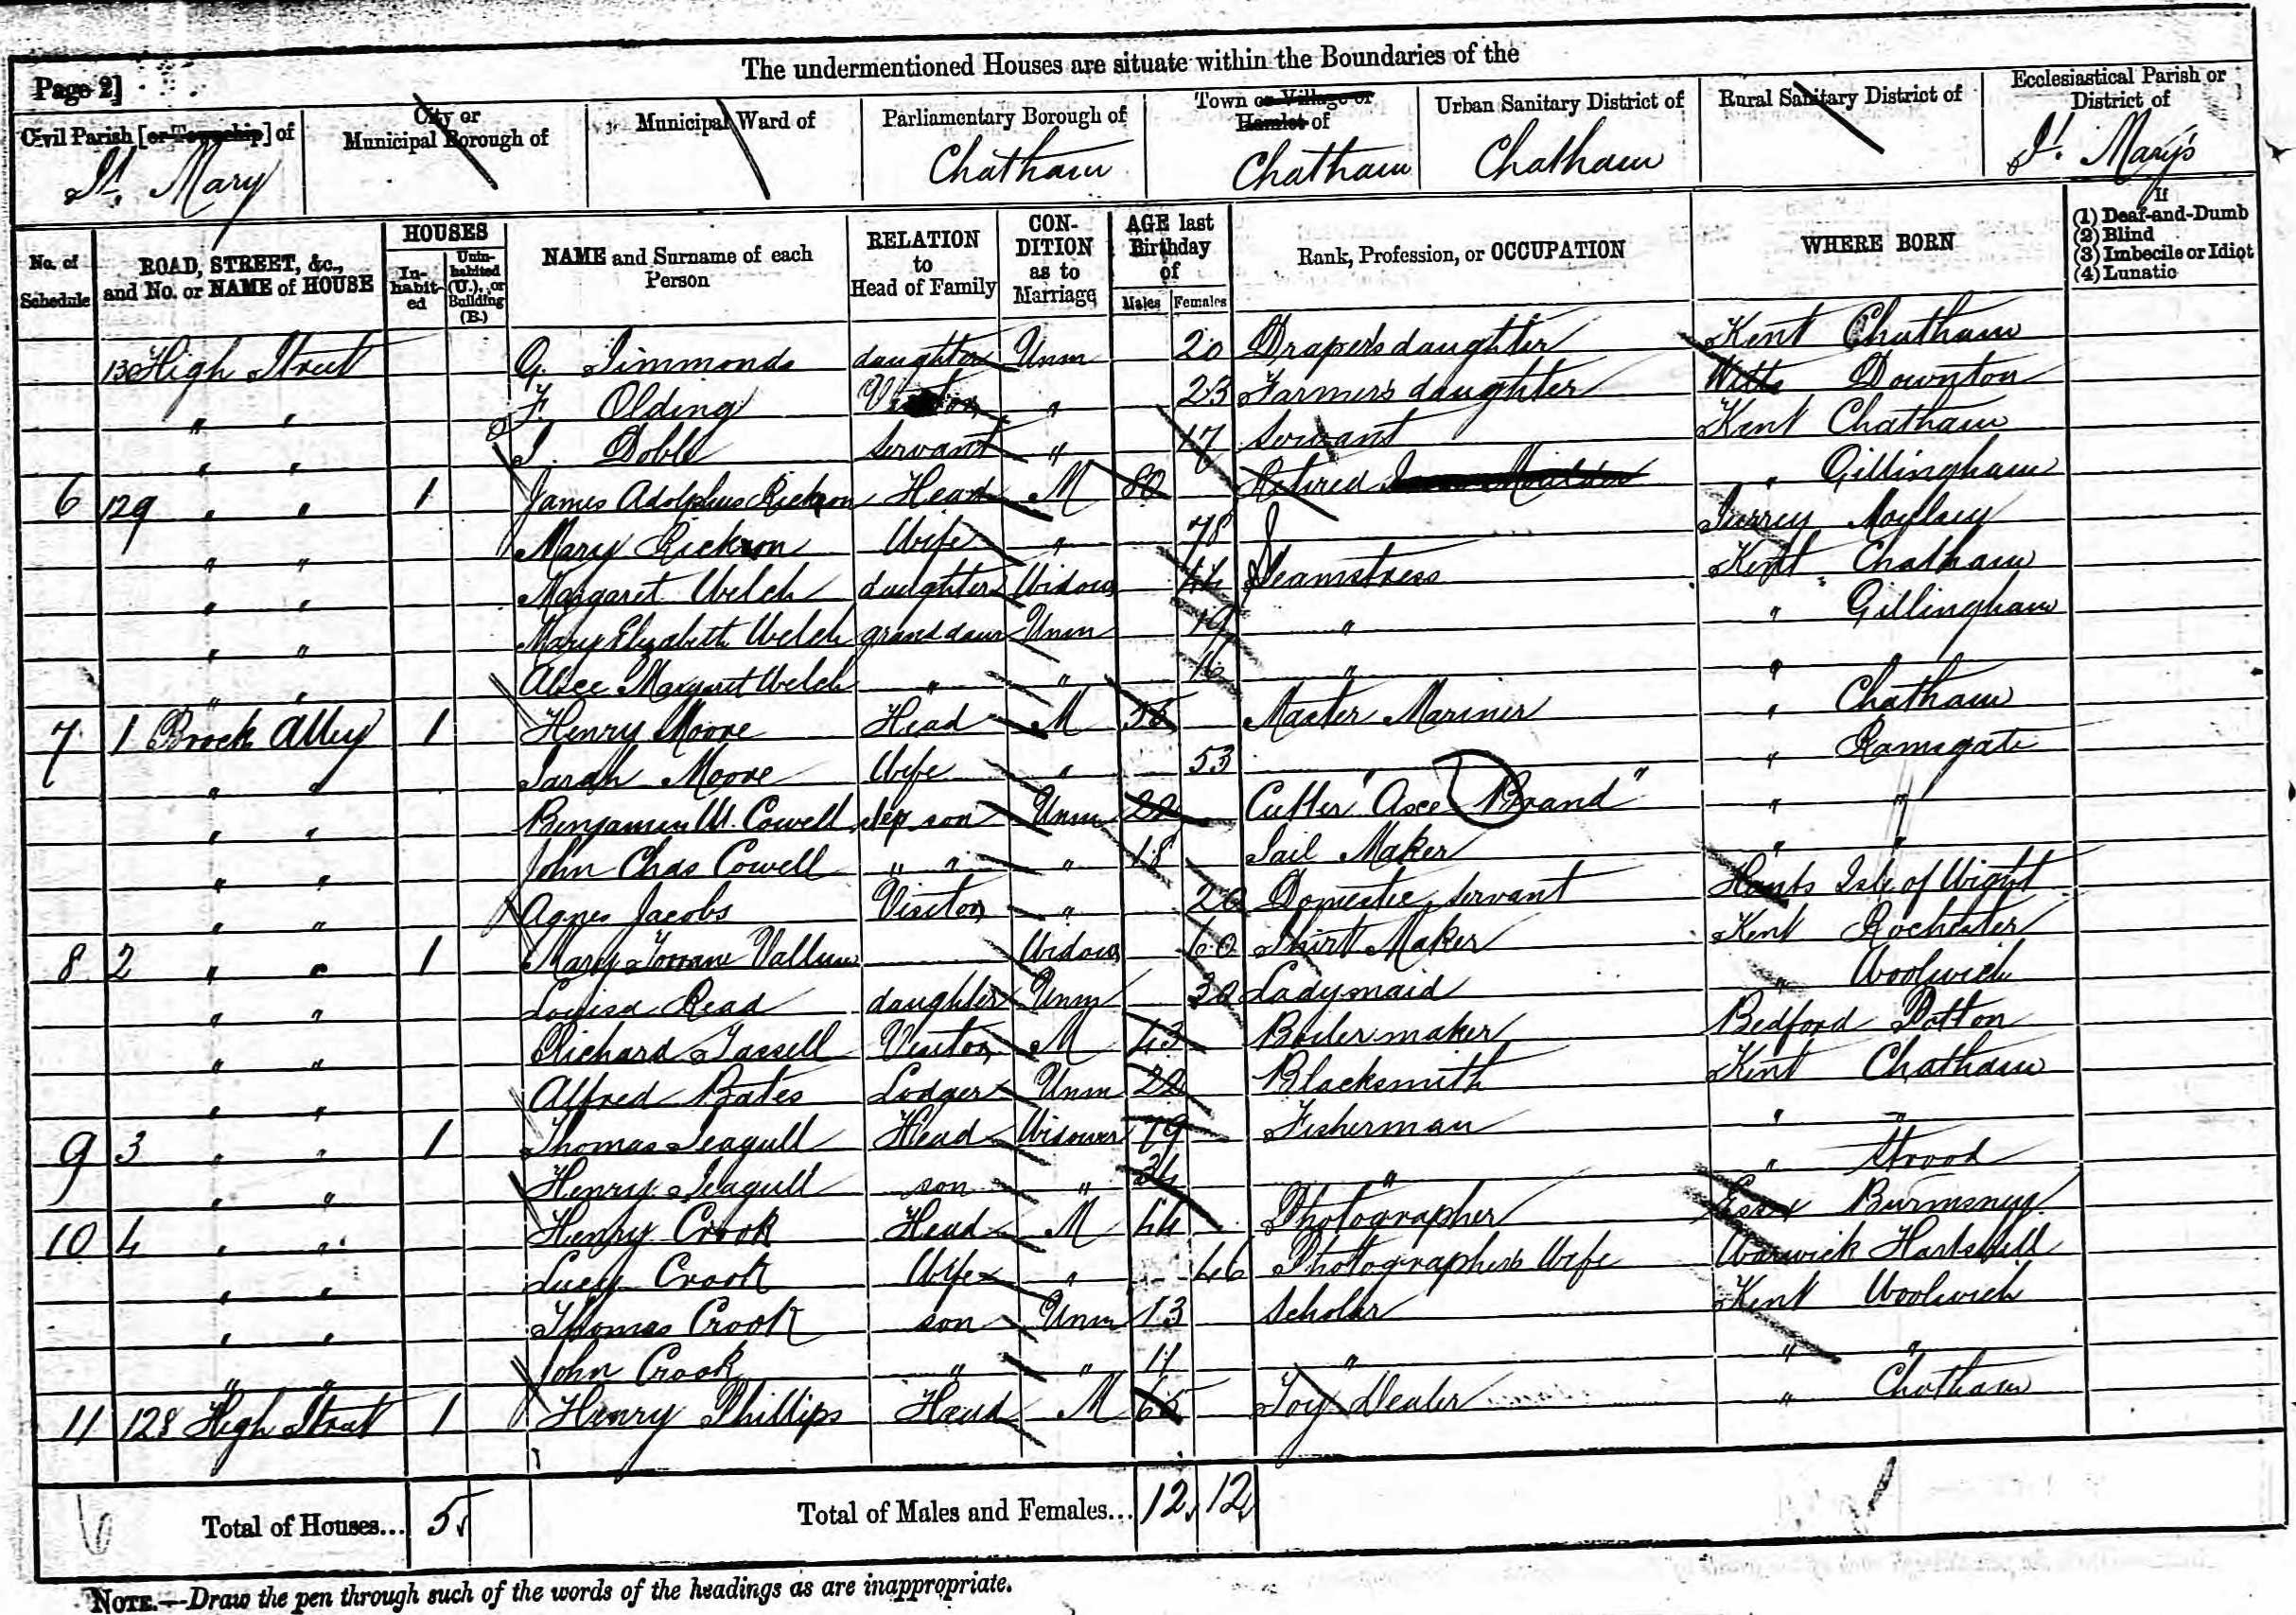 The undermentioned Houses are situate within the Boundaries of the
Page 2]
Civil Parish [or Township] of
St. Mary
City or Municipal Borough of
Municipal Ward of
Parliamentary Borough of
Chatham
Town or Village or Hamlet of
Chatham
Urban Sanitary District of
Chatham
Rural Sanitary District of
Ecclesiastical Parish or District of
St. Mary's
No. of Schedule
ROAD, STREET, &c., and No. or NAME of HOUSE
HOUSES
In-habit-ed
Unin-habited (U.), or Building (B.)
NAME and Surname of each Person
RELATION to Head of Family
CON-DITION as to Marriage
AGE last Birthday of
Males Females
Rank, Profession, or OCCUPATION
WHERE BORN
If
(1) Deaf-and-Dumb
(2) Blind
(3) Imbecile or Idiot
(4) Lunatic
130 High Street G. Simmonds daughter Unm 20 Drapers daughter Kent Chatham
" " F. Olding Visitor " 23 Farmer's daughter Wilts Downton
" " Doble Servant " 17 Servant Kent Chatham
6 129 " " 1 James Adolphus Rickson Head M 80 Retired " Gillingham
" " Mary Rickson Wife " 78 Surrey
" " Margaret Welch daughter Widow 44 Seamstress Kent Chatham
" " Mary Elizabeth Welch grand daur Unm 19 " " Gillingham
" " Alice Margaret Welch " " 16 " "
7 1 Brook Alley 1 Henry Moore Head M 58 Master Mariner " Chatham
" " Sarah Moore Wife " 53 " Ramsgate
" " Benjamin W. Cowell step son Unm 22 Cutter " Brand" " "
" " John Chas Cowell " " " 18 Sail Maker " "
" " Agnes Jacobs Visitor " 20 Domestic Servant Hants Isle of Wight
8 2 " " 1 Mary Widow 60 Shirt Maker Kent Rochester
" " Louisa Read daughter Unm 30 Ladymaid " Woolwich
" " Richard Tassell Visitor M 43 Boiler maker Bedford Potton
" " Alfred Bates Lodger Unm 22 Blacksmith Kent Chatham
9 3 " " 1 Thomas Seagull Head Widower 79 Fisherman " "
" " Henry Seagull son " 34 " " Strood
10 4 " " Henry Crook Head M 44 Photographer Essex
" " Lucy Crook Wife " 46 Photographers Wife Warwick Hartshill
" " Thomas Crook son Unm 13 Scholar Kent Woolwich
" " John Crook " " 11 " " "
11 128 High Street 1 Henry Phillips Head M 65 Toy Dealer " Chatham
Total of Houses... 5
Total of Males and Females... 12 12
NOTE.—Draw the pen through such of the words of the headings as are inappropriate.